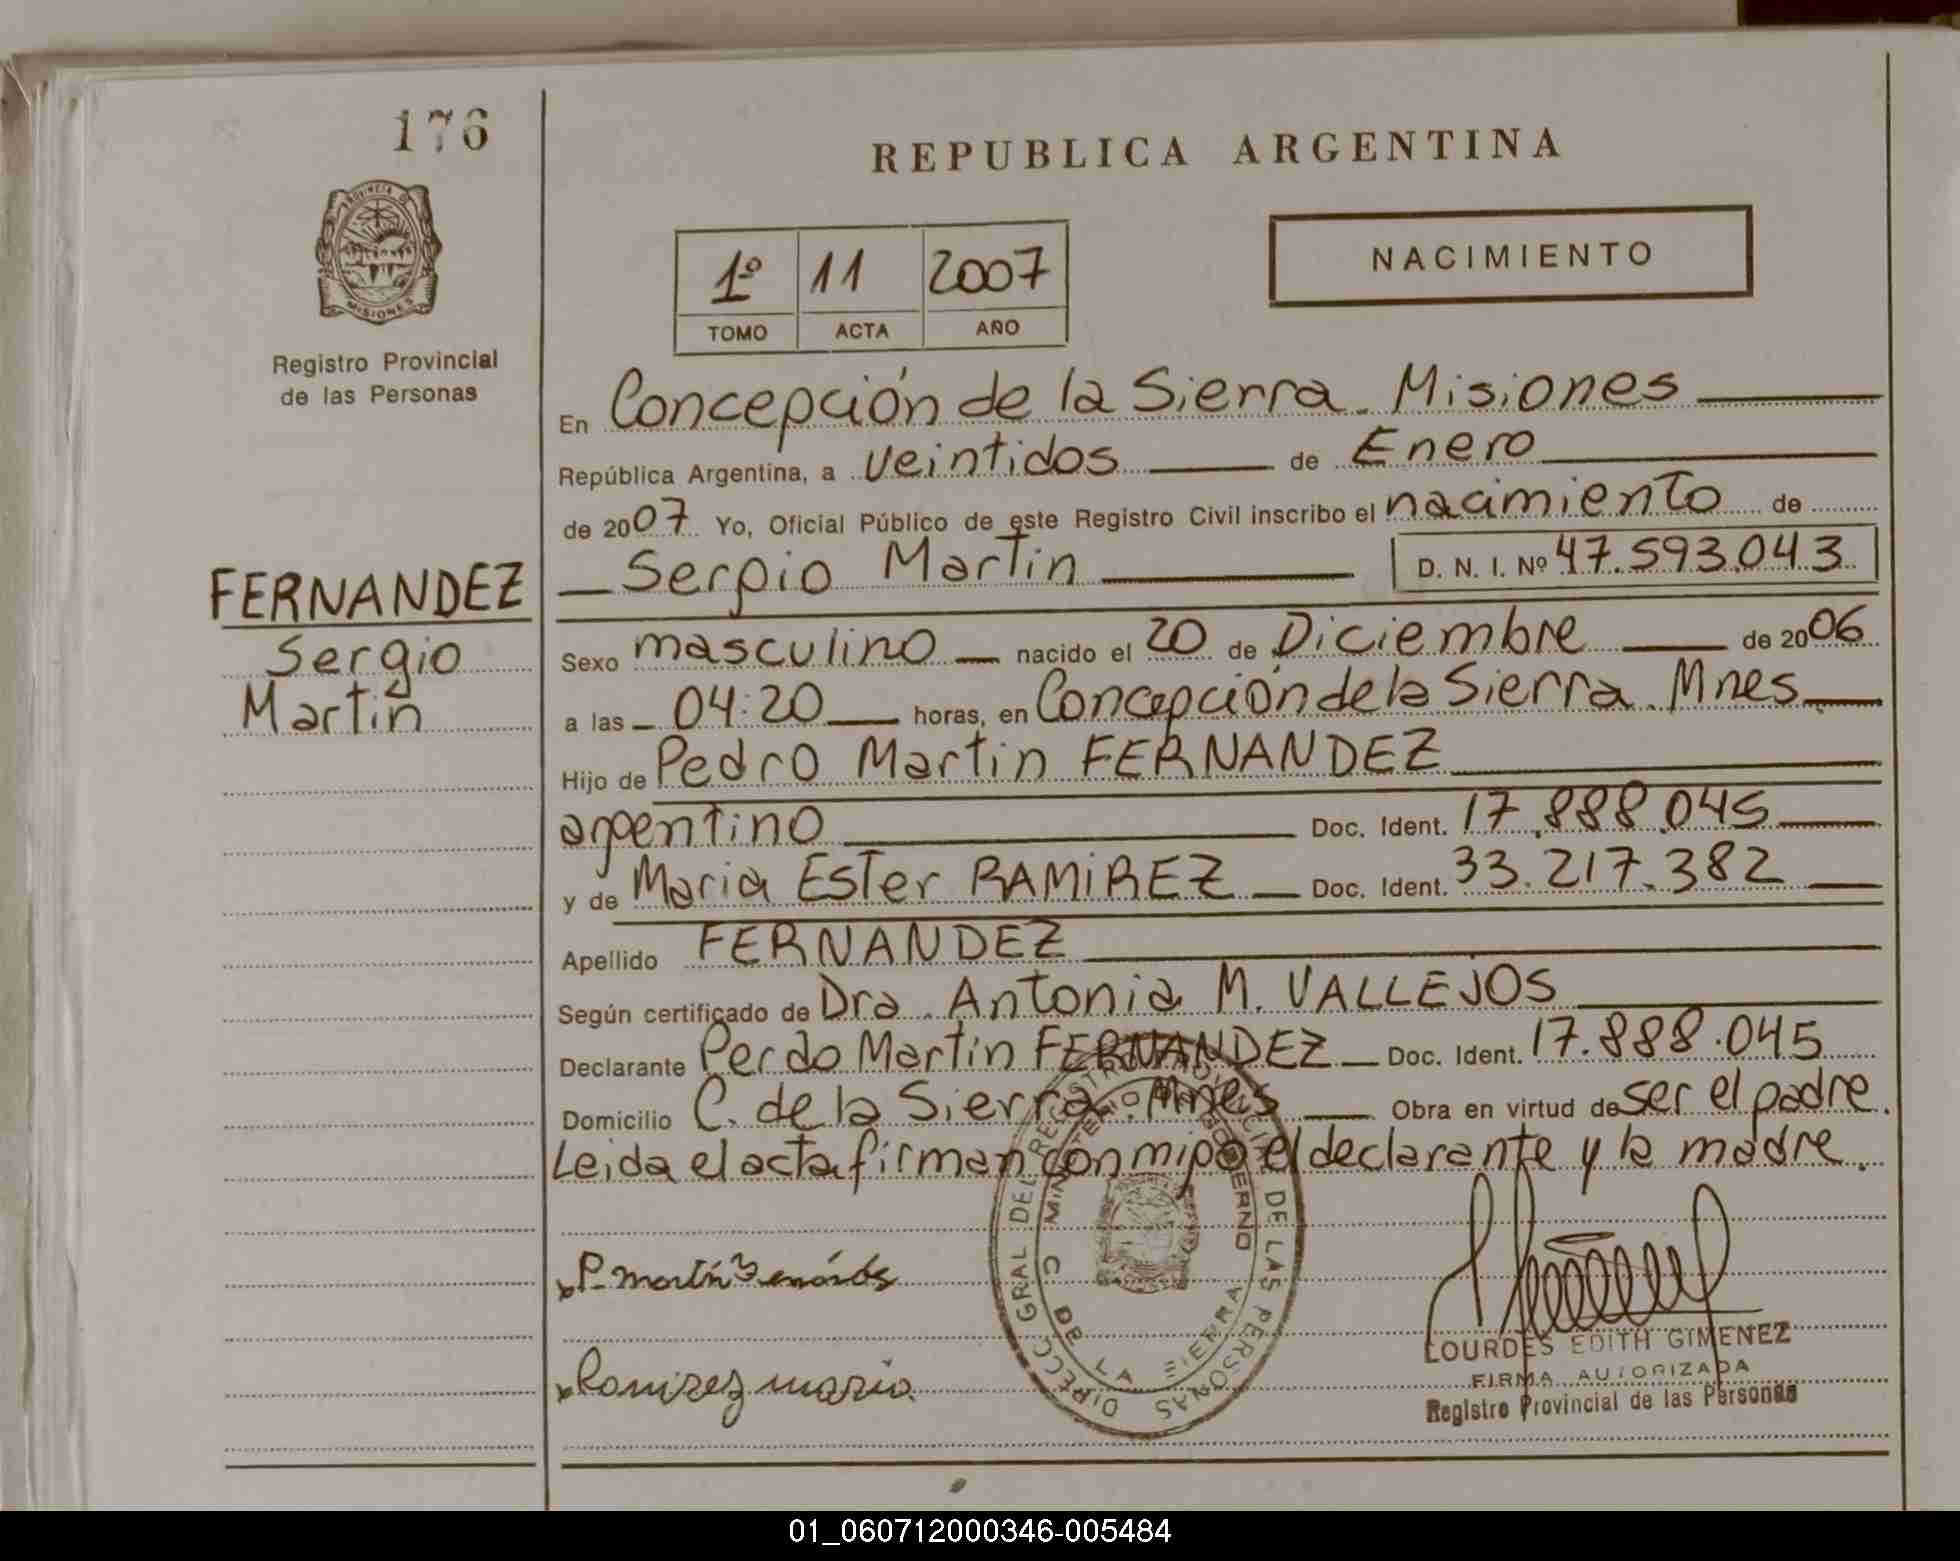 176
REPUBLICA ARGENTINA
PROVINCIA D
MISIONES
Registro Provincial
de las Personas
1º 11 2007
TOMO ACTA AÑO
NACIMIENTO
En Concepción de la Sierra. Misiones
República Argentina, a veintidos de Enero
de 2007 Yo, Oficial Público de este Registro Civil inscribo el nacimiento de
Sergio Martin D. N. I. Nº 47.593.043
FERNANDEZ
Sergio
Martin
Sexo masculino nacido el 20 de Diciembre de 2006
a las 04:20 horas, en Concepción de la Sierra. Mnes
Hijo de Pedro Martin FERNANDEZ
argentino Doc. Ident. 17.888.045
y de Maria Ester RAMIREZ Doc. Ident. 33.217.382
Apellido FERNANDEZ
Según certificado de Dra. Antonia M. VALLEJOS
Declarante Perdo Martin FERNANDEZ Doc. Ident. 17.888.045
Domicilio C. de la Sierra. Mnes Obra en virtud de ser el padre.
Leida el acta firman con mipo el declarante y la madre.
P. martin
Ramirez maria
DIRECC GRAL DEL REGISTRO PROVINCIAL DE LAS PERSONAS
MINISTERIO DE GOBIERNO
C DE LA SIERRA
LOURDES EDITH GIMENEZ
FIRMA AUTORIZADA
Registro Provincial de las Personas
01_060712000346-005484